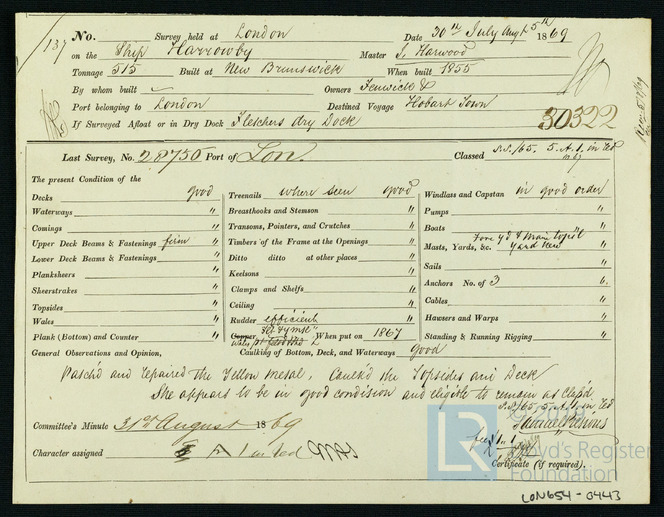 137
No. Survey held at London Date 30th July Augt 5th 1869
on the Ship Harrowby Master J. Harwood
Tonnage 515 Built at New Brunswick When built 1855
By whom built Owners Fenwick &
Port belonging to London Destined Voyage Hobart Town
If Surveyed Afloat or in Dry Dock Fletchers Dry Dock 30322
Last Survey, No. 28750 Port of Lon. Classed S.S./65. 5.A.1, in red
The present Condition of the
Decks good Treenails where seen good Windlass and Capstan in good order
Waterways " Breasthooks and Stemson " Pumps "
Comings " Transoms, Pointers, and Crutches " Boats "
Upper Deck Beams & Fastenings firm " Timbers of the Frame at the Openings " Masts, Yards, &c. Fore yd & Main topsl Yard New
Lower Deck Beams & Fastenings " Ditto ditto at other places " Sails "
Planksheers " Keelsons " Anchors No. of 3
Sheerstrakes " Clamps and Shelfs " Cables "
Topsides " Ceiling " Hawsers and Warps "
Wales " Rudder efficient " Standing & Running Rigging "
Plank (Bottom) and Counter " Copper When put on 1867
General Observations and Opinion, Caulking of Bottom, Deck, and Waterways good
Patch'd and repaired the Yellow Metal, Caulk'd the Topsides and Deck
She appears to be in good condition and eligible to remain as Class'd
S.S./65. 5.A.1, in red
Committee's Minute 31st August 1869
Character assigned A 1 in red
Certificate (if required).
© 2019
LR
Lloyd's Register
Foundation
LON654-0443